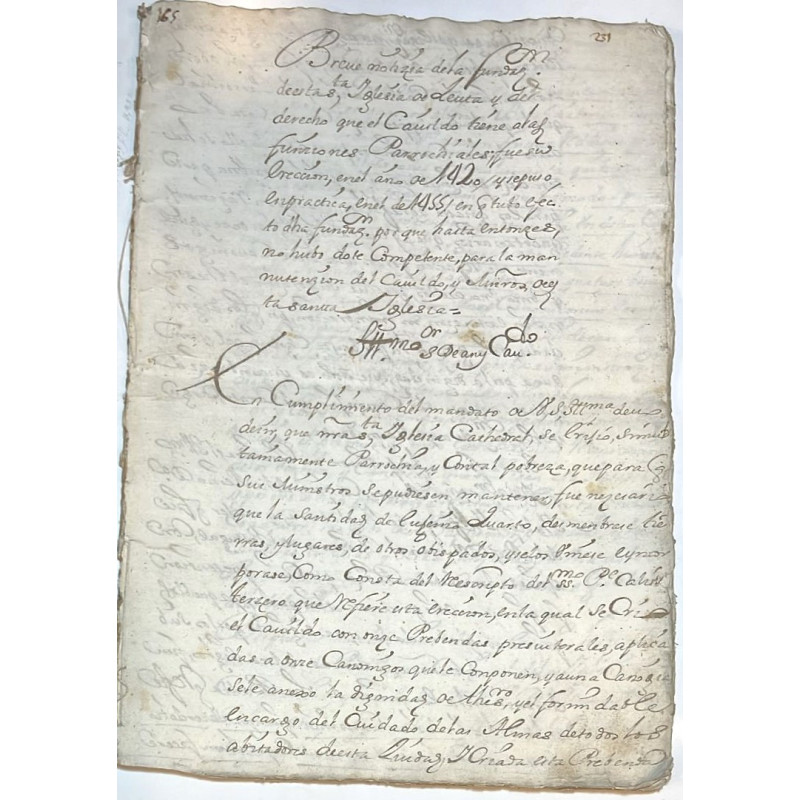 165
231
Breve notizia dela fundaz.on
de esta s.ta Iglesia de Ceuta y del
derecho que el Cauildo tiene a las
funziones Parrochiales; fue su
Ereccion, en el año de 1420/ y se puso,
en practica, en el de 1455/ en q tubo efec-
to dha fundaz.n porque hasta entonzes,
no hubo dote Competente, para la man
nutenzion del Cauildo, y Minros de es
ta santa Iglesia=
Ill.mo S.or Dean y Cau.do
En Cumplimiento del mandato de V. S. Ill.ma deuo
dezir, que nra s.ta Iglesia Cathedral, se erijio, simul
taniamente Parrochia, y Con tal pobreza, que para q
sus Ministros se pudiesen mantener, fue nezesario
que la santidad de Eugenio Quarto, desmenbrase tie
rras, y lugares, de otros obispados, y se los Vniese e yncor
porase, Como Consta del Rescripto del ss.mo P.e Calixto
terzero que Refiere esta Ereccion, en la qual se Crio
el Cauildo con onze Prebendas presuiterales, aplica-
das a onze Canonigos que le Conponen, y a una Canongia
se le anexo la dignidad de Thes.ro, y el formidable
encargo del Cuidado de las Almas de todos los
abitadores de esta Ziudad, Y Criada esta Prebenda